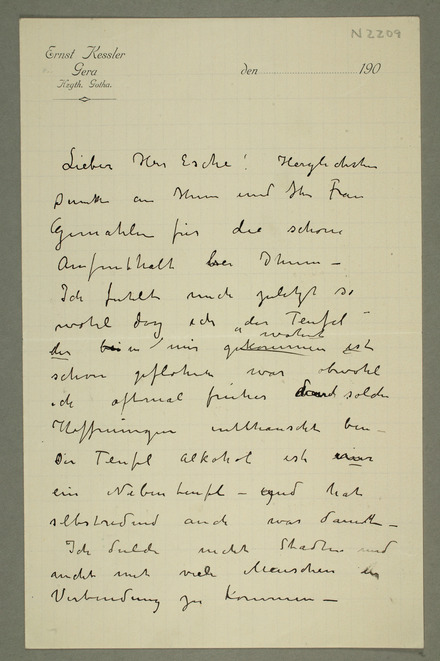 N2209
Ernst Kessler
Gera
Hzgth. Gotha.
den 190
Lieber Herr Esche! Herzlichsten
Dank an Ihnen und Ihr Frau
Gemahlin für die schöne
Aufenthalt bei Ihnen –
Ich fühlte mich zuletzt so
wohl dass ich „der Teufel"
der in mir wohnt ist
schon geflohen war obwohl
ich oftmal früher durch solche
Hoffnungen enttäuscht bin –
Der Teufel Alkohol ist nur
ein Nebenteufel – und hat
selbstredend auch was damit –
Ich dulde nicht Städte und
nicht mit viele Menschen in
Verbindung zu kommen –